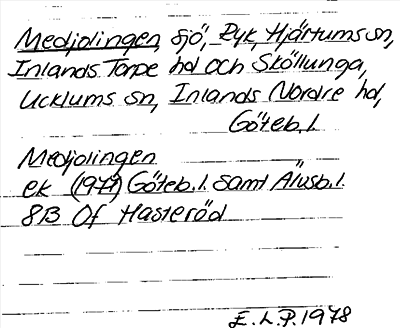 Medjolingen, sjö, Ryk, Hjärtums sn,
Inlands Torpe hd och Sköllunga,
Ucklums sn, Inlands Nordre hd,
Göteb. l.
Medjolingen
ek (1977) Göteb. l. samt Älvsb. l.
8B Of Hasteröd
E. L. P. 1978